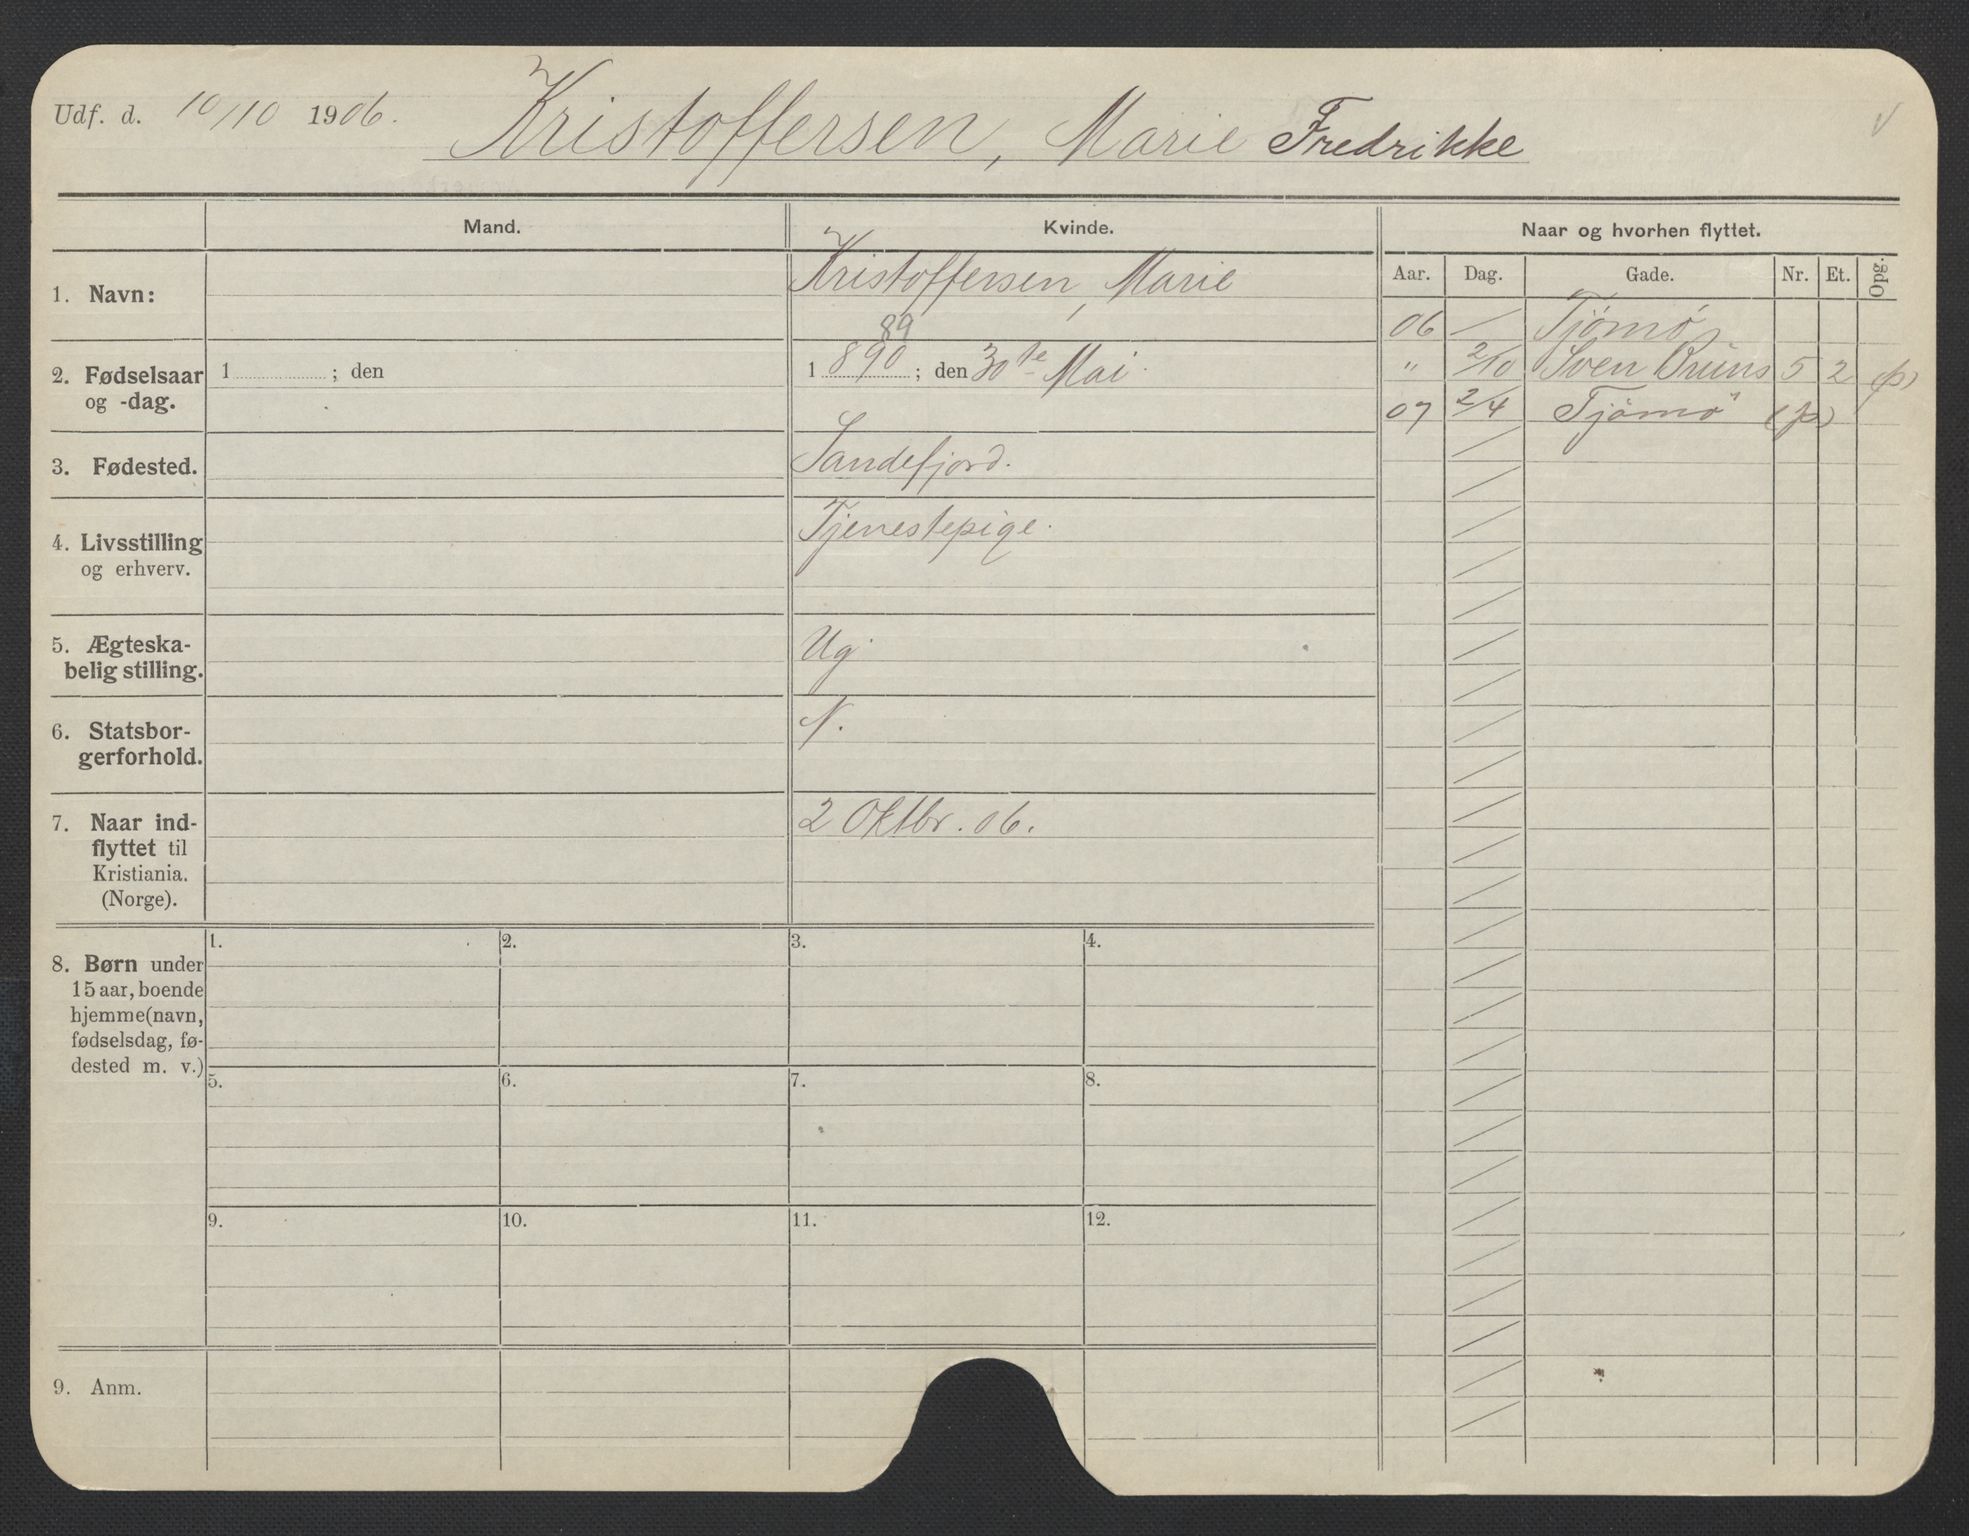 Udf. d. 10/10 1906. Kristoffersen, Marie Fredrikke
Mand. Kvinde. Naar og hvorhen flyttet.
Aar. Dag. Gade. Nr. Et. Opg.
1. Navn: Kristoffersen, Marie
06 Tjömö
89
2. Fødselsaar
og -dag.
1 ; den
1 890 ; den 30te Mai.
" 2/10 Sven Bruns 5 2 (p)
07 2/4 Tjömö (p)
3. Fødested. Sandefjord.
4. Livsstilling
og erhverv.
Tjenestepige.
5. Ægteska-
belig stilling.
Ug
6. Statsbor-
gerforhold.
N.
7. Naar ind-
flyttet til
Kristiania.
(Norge).
2 Oktbr. 06.
8. Børn under
15 aar, boende
hjemme (navn,
fødselsdag, fø-
dested m. v.)
1. 2. 3. 4.
5. 6. 7. 8.
9. 10. 11. 12.
9. Anm.